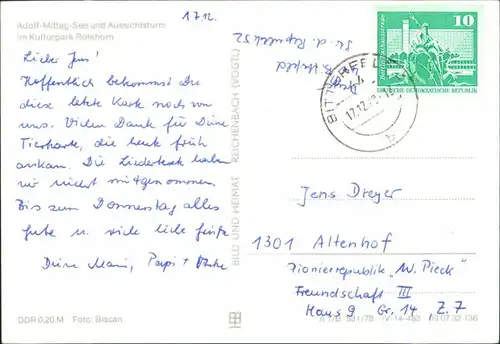 17.12.
Adolf-Mittag-See und Aussichtsturm
im Kulturpark Rotehorn
Lieber Jens!
Hoffentlich bekommst Du
diese letzte Karte noch von
uns. Vielen Dank für Deine
Tierkarte, die heute früh
ankam. Die Liedertexte haben
wir nicht mitgenommen.
Bis zum Donnerstag alles
gute u. viele liebe Grüße
Deine Mami, Papi +
DDR 0,20 M Foto: Biscan
BILD UND HEIMAT REICHENBACH (VOGTL)
Str. d. Republik 52
10
DEUTSCHE DEMOKRATISCHE REPUBLIK
BITTERFELD
44
17.12.79
Jens Dreyer
1301 Altenhof
Pionierrepublik „W. Pieck"
Freundschaft III
Haus 9 Gr. 14 Z. 7
V-14-483 03 07 32 136